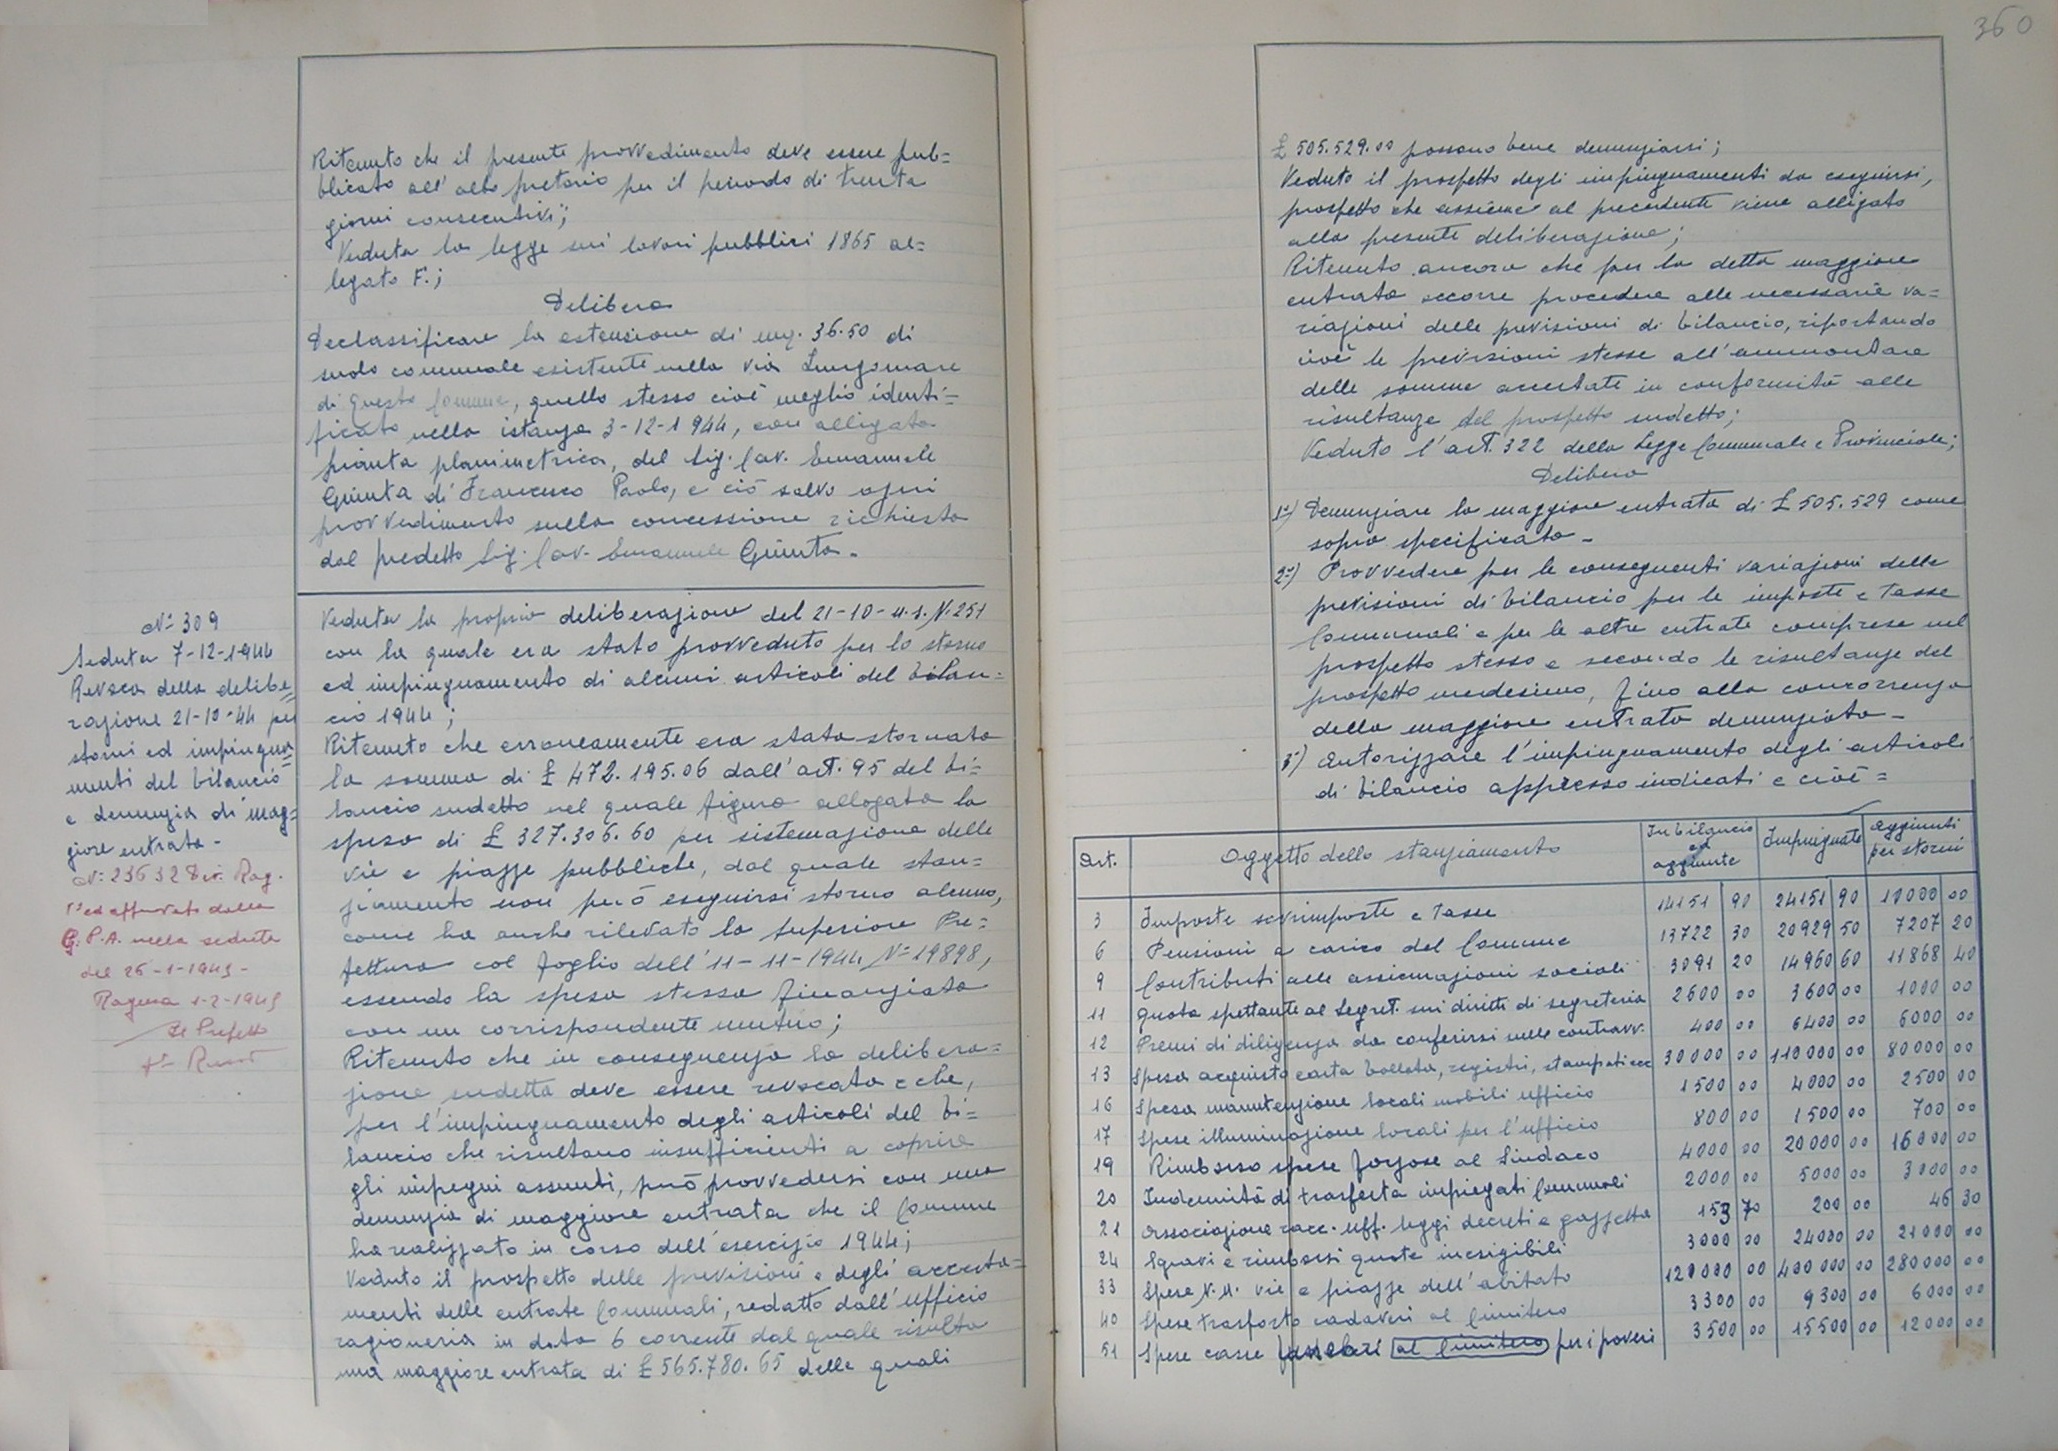 360
Ritenuto che il presente provvedimento deve essere pub=
blicato all'albo pretorio per il periodo di trenta
giorni consecutivi;
Veduta la legge sui lavori pubblici 1865 al=
legato F.;
Delibera
Declassificare la estensione di mq. 36.50 di
suolo comunale esistente nella via Lungomare
di questo Comune, quello stesso cioè meglio identi=
ficato nella istanza 3-12-1944, con alligata
pianta planimetrica, del Sig. Cav. Emanuele
Giunta di Francesco Paolo, e ciò salvo ogni
provvedimento sulla concessione richiesta
dal predetto Sig. Cav. Emanuele Giunta.-
N° 309
Seduta 7-12-1944
Revoca della delibe=
razione 21-10-44 per
storni ed impingua=
menti del bilancio
e denunzia di mag=
giore entrata.-
N: 23632 Div. Rag.
ed approvato dalla
G.P.A. nella seduta
del 26-1-1945-
Ragusa 1-2-1945
Il Prefetto
Veduta la propria deliberazione del 21-10-u.s. N. 251
con la quale era stato provveduto per lo storno
ed impinguamento di alcuni articoli del bilan=
cio 1944;
Ritenuto che erroneamente era stata stornata
la somma di £ 472.195.06 dall'art. 95 del bi=
lancio sudetto nel quale figura allogata la
spesa di £ 327.306.60 per sistemazione delle
vie e piazze pubbliche, dal quale stan=
ziamento non può eseguirsi storno alcuno,
come ha anche rilevato la Superiore Pre=
fettura col foglio dell'11-11-1944 N° 19898,
essendo la spesa stessa finanziata
con un corrispondente mutuo;
Ritenuto che in conseguenza la delibera=
zione sudetta deve essere revocata e che,
per l'impinguamento degli articoli del bi=
lancio che risultano insufficienti a coprire
gli impegni assunti, può provvedersi con una
denunzia di maggiore entrata che il Comune
ha realizzato in corso dell'esercizio 1944;
Veduto il prospetto delle previsioni e degli accerta=
menti delle entrate Comunali, redatto dall'Ufficio
ragioneria in data 6 corrente dal quale risulta
una maggiore entrata di £ 565.780.65 delle quali
£ 505.529.00 possono bene denunziarsi;
Veduto il prospetto degli impinguamenti da eseguirsi,
prospetto che assieme al precedente viene alligato
alla presente deliberazione;
Ritenuto ancora che per la detta maggiore
entrata occorre procedere alle necessarie va=
riazioni delle previsioni di bilancio, riportando
cioè le previsioni stesse all'ammontare
delle somme accertate in conformità alle
risultanze del prospetto sudetto;
Veduto l'art. 322 della Legge Comunale e Provinciale;
Delibera
1°) Denunziare la maggiore entrata di £ 505.529 come
sopra specificata.-
2°) Provvedere per le conseguenti variazioni delle
previsioni di bilancio per le imposte e tasse
Comunali e per le altre entrate comprese nel
prospetto stesso e secondo le risultanze del
prospetto medesimo, fino alla concorrenza
della maggiore entrata denunziata.-
3°) Autorizzare l'impinguamento degli articoli
di bilancio appresso indicati e cioè=
Art. Oggetto dello stanziamento In bilancio ed aggiunte Impinguate Aggiunti per storni
3 Imposte sovrimposte e tasse 14151 90 24151 90 10000 00
6 Pensioni a carico del Comune 13722 30 20929 50 7207 20
9 Contributi alle assicurazioni sociali 3091 20 14960 60 11868 40
11 Quota spettante al Segret. sui diritti di segreteria 2600 00 3600 00 1000 00
12 Premi di diligenza da conferirsi sulle contravv. 400 00 6400 00 6000 00
13 Spesa acquisto carta bollata, registri, stampati ecc 30000 00 110000 00 80000 00
16 Spesa manutenzione locali mobili ufficio 1500 00 4000 00 2500 00
17 Spese illuminazione locali per l'ufficio 800 00 1500 00 700 00
19 Rimborso spese forzose al Sindaco 4000 00 20000 00 16000 00
20 Indennità di trasferta impiegati Comunali 2000 00 5000 00 3000 00
21 Associazione racc. uff. leggi decreti e gazzetta 153 70 200 00 46 30
24 Sgravi e rimborsi quote inesigibili 3000 00 24000 00 21000 00
33 Spese N.U. vie e piazze dell'abitato 120000 00 400000 00 280000 00
40 Spese trasporto cadaveri al Cimitero 3300 00 9300 00 6000 00
51 Spese casse funebri al Cimitero per i poveri 3500 00 15500 00 12000 00